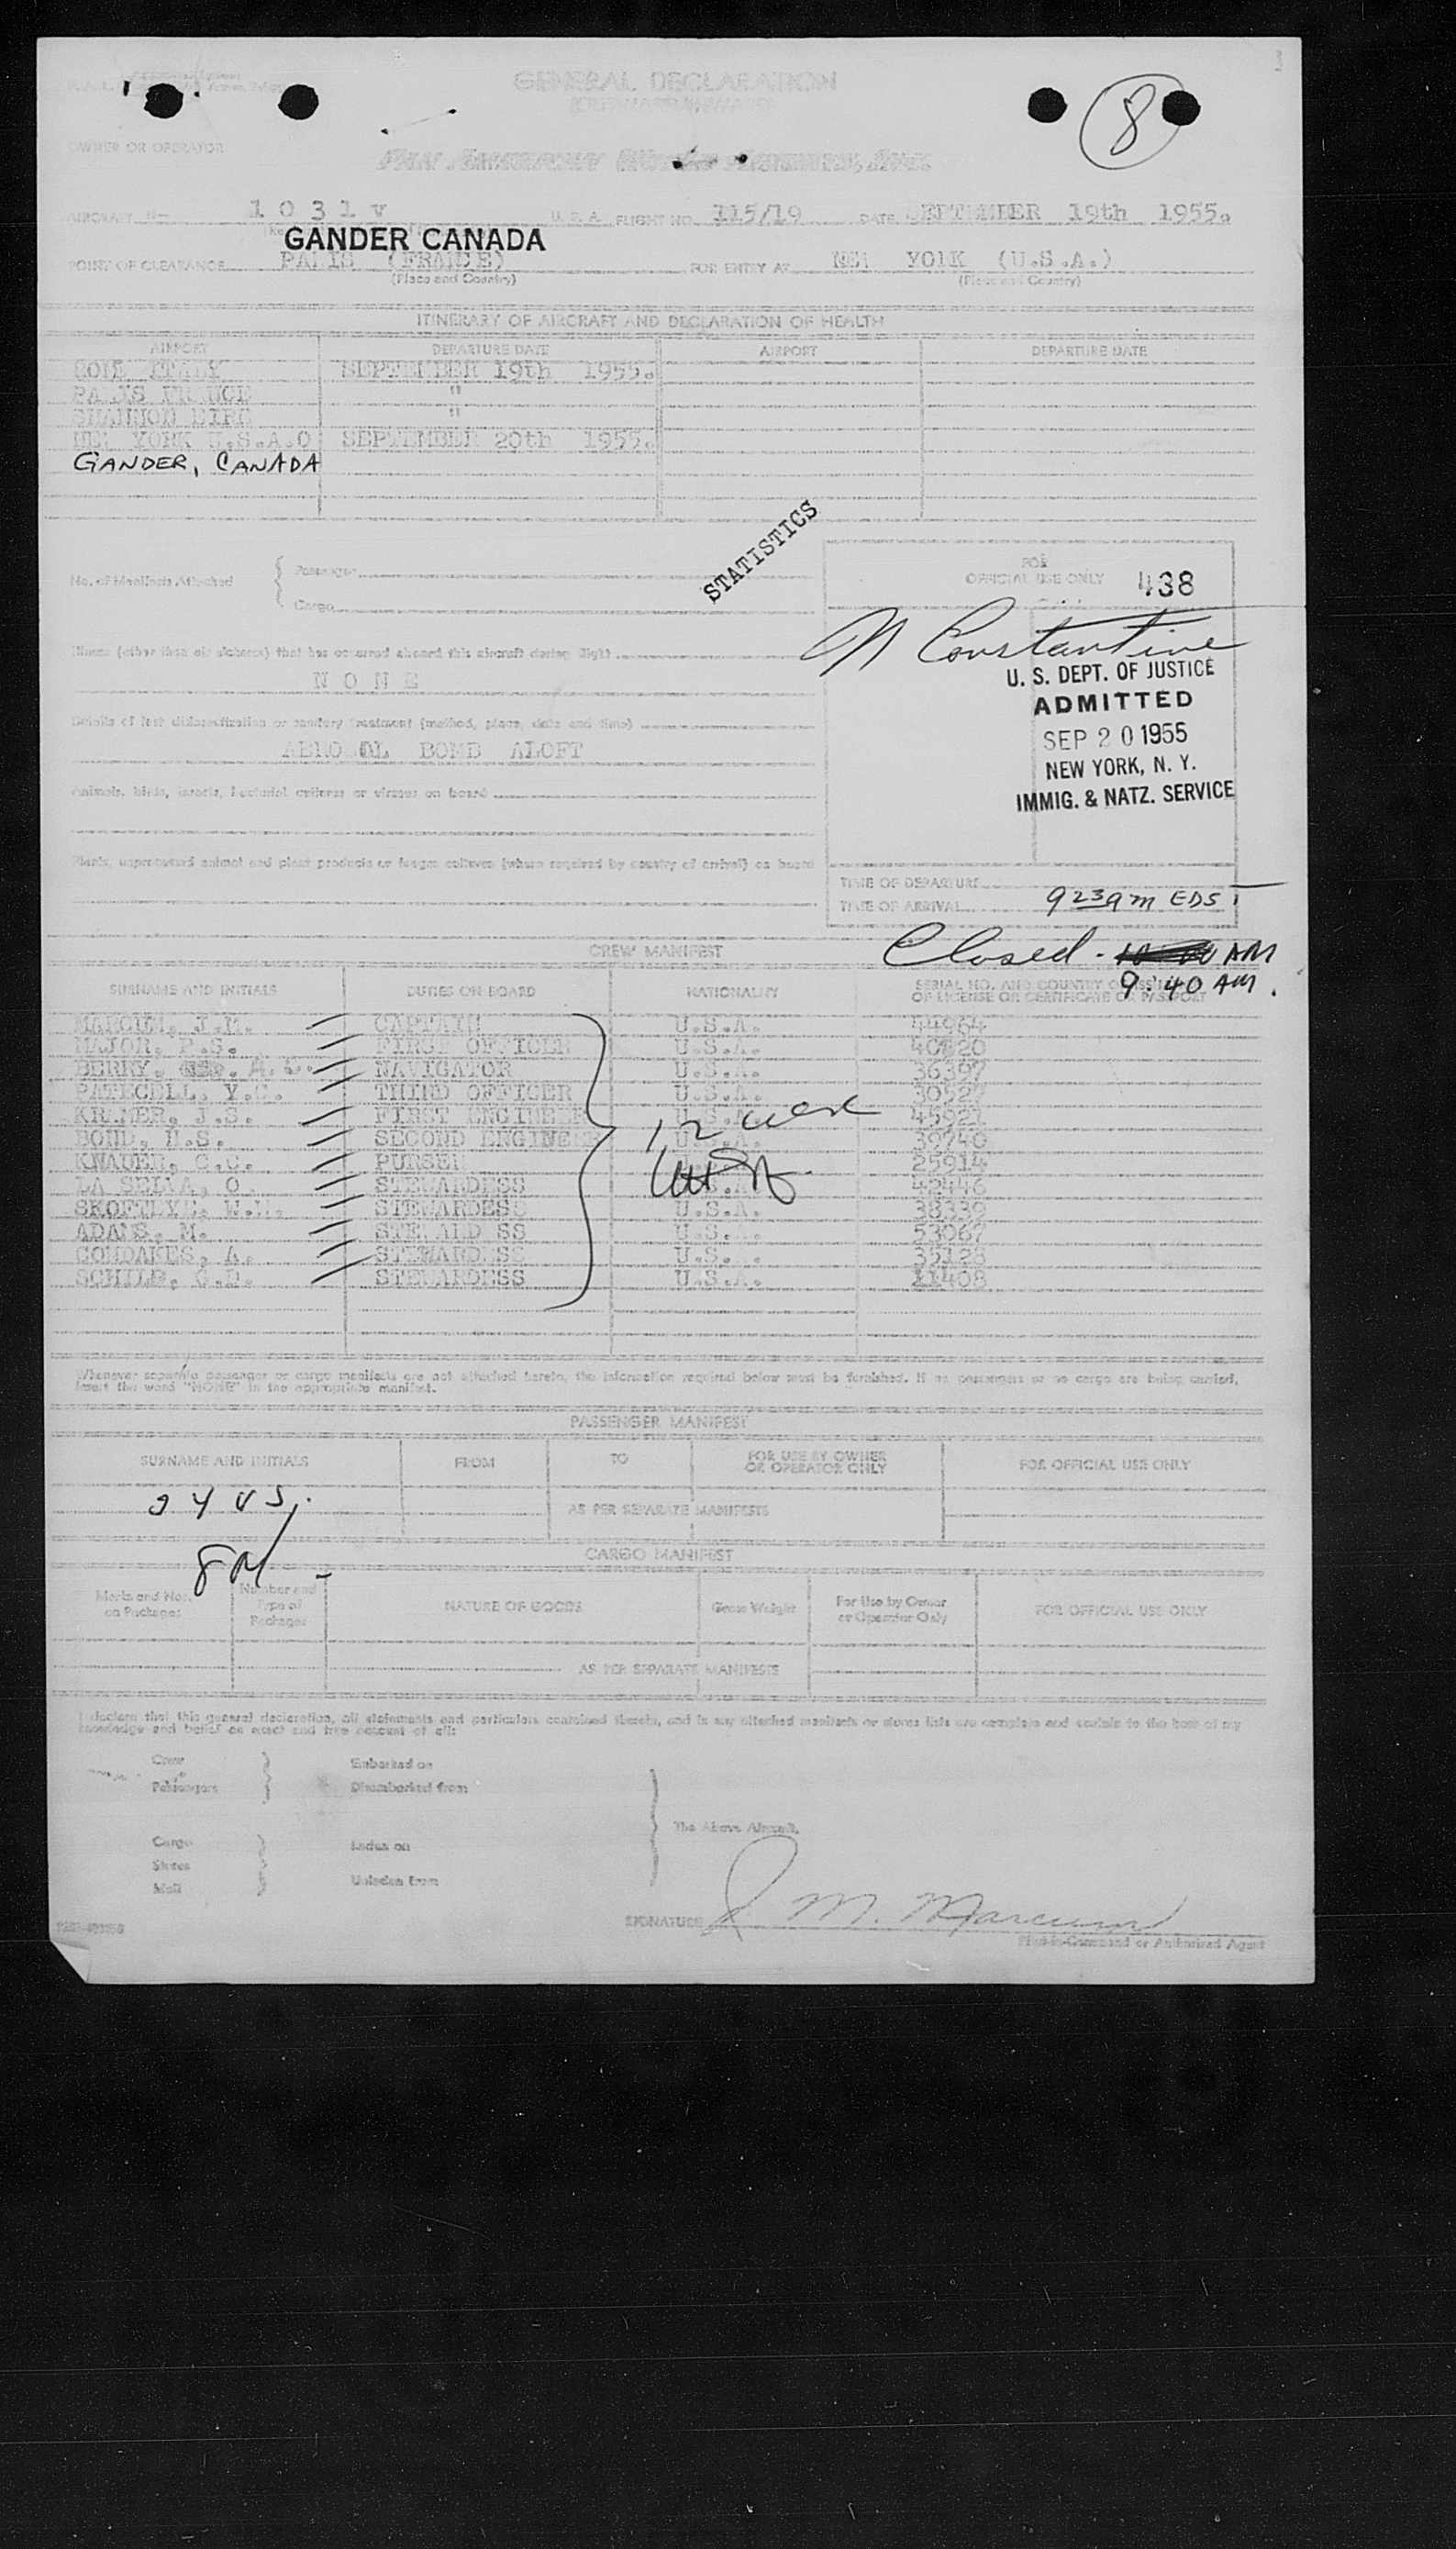 GENERAL DECLARATION
(OUTWARD/INWARD)
8
OWNER OR OPERATOR
PAN AMERICAN WORLD AIRWAYS, INC.
AIRCRAFT N- 1031V U.S.A. FLIGHT NO. 115/19 DATE SEPTEMBER 19th 1955.
GANDER CANADA
POINT OF CLEARANCE PARIS (FRANCE) FOR ENTRY AT NEW YORK (U.S.A.)
(Place and Country) (Place and Country)
ITINERARY OF AIRCRAFT AND DECLARATION OF HEALTH
AIRPORT DEPARTURE DATE AIRPORT DEPARTURE DATE
ROME ITALY SEPTEMBER 19th 1955.
PARIS FRANCE "
SHANNON EIRE "
NEW YORK U.S.A. SEPTEMBER 20th 1955.
GANDER, CANADA
STATISTICS
No. of Manifests Attached { Passenger
Cargo
FOR
OFFICIAL USE ONLY 438
N Constantine
Illness (other than air sickness) that has occurred aboard this aircraft during flight
NONE
U. S. DEPT. OF JUSTICE
ADMITTED
SEP 20 1955
NEW YORK, N. Y.
IMMIG. & NATZ. SERVICE
Details of last disinsectization or sanitary treatment (method, place, date and time)
AEROSOL BOMB ALOFT
Animals, birds, insects, bacterial cultures or viruses on board
Plants, unprocessed animal and plant products or fungus cultures (where required by country of arrival) on board
TIME OF DEPARTURE
TIME OF ARRIVAL 923am EDST
Closed - AM
9:40 AM.
CREW MANIFEST
SURNAME AND INITIALS DUTIES ON BOARD NATIONALITY SERIAL NO. AND COUNTRY OF ISSUE
OF LICENSE OR CERTIFICATE OR PASSPORT
MARCUM, J.M. CAPTAIN U.S.A. 44964
MAJOR, P.S. FIRST OFFICER U.S.A. 40820
BERRY, A. NAVIGATOR U.S.A. 36397
PATECELL, Y.C. THIRD OFFICER U.S.A. 30527
KRAMER, J.S. FIRST ENGINEER U.S.A. 45921
BOND, H.S. SECOND ENGINEER U.S.A. 39740
KNAUER, C.C. PURSER 25914
LA SELVA, O. STEWARDESS 42446
STEWARDESS U.S.A. 38339
ADAMS, M. STEWARDESS U.S.A. 53067
CONDAKES, A. STEWARDESS U.S.A. 35128
SCHILD, C.E. STEWARDESS U.S.A. 11408
12
Whenever separate passenger or cargo manifests are not attached hereto, the information required below must be furnished. If no passengers or no cargo are being carried,
insert the word "NONE" in the appropriate manifest.
PASSENGER MANIFEST
SURNAME AND INITIALS FROM TO FOR USE BY OWNER
OR OPERATOR ONLY FOR OFFICIAL USE ONLY
AS PER SEPARATE MANIFESTS
CARGO MANIFEST
Marks and Nos.
on Packages Number and
Type of
Packages NATURE OF GOODS Gross Weight For Use by Owner
or Operator Only FOR OFFICIAL USE ONLY
AS PER SEPARATE MANIFESTS
I declare that this general declaration, all statements and particulars contained therein, and in any attached manifests or stores lists are complete and exact to the best of my
knowledge and belief an exact and true account of all:
Crew Embarked on
Passengers Disembarked from
The Above Aircraft.
Cargo Laden on
Stores
Mail Unladen from
SIGNATURE J M. Marcum
Pilot-in-Command or Authorized Agent